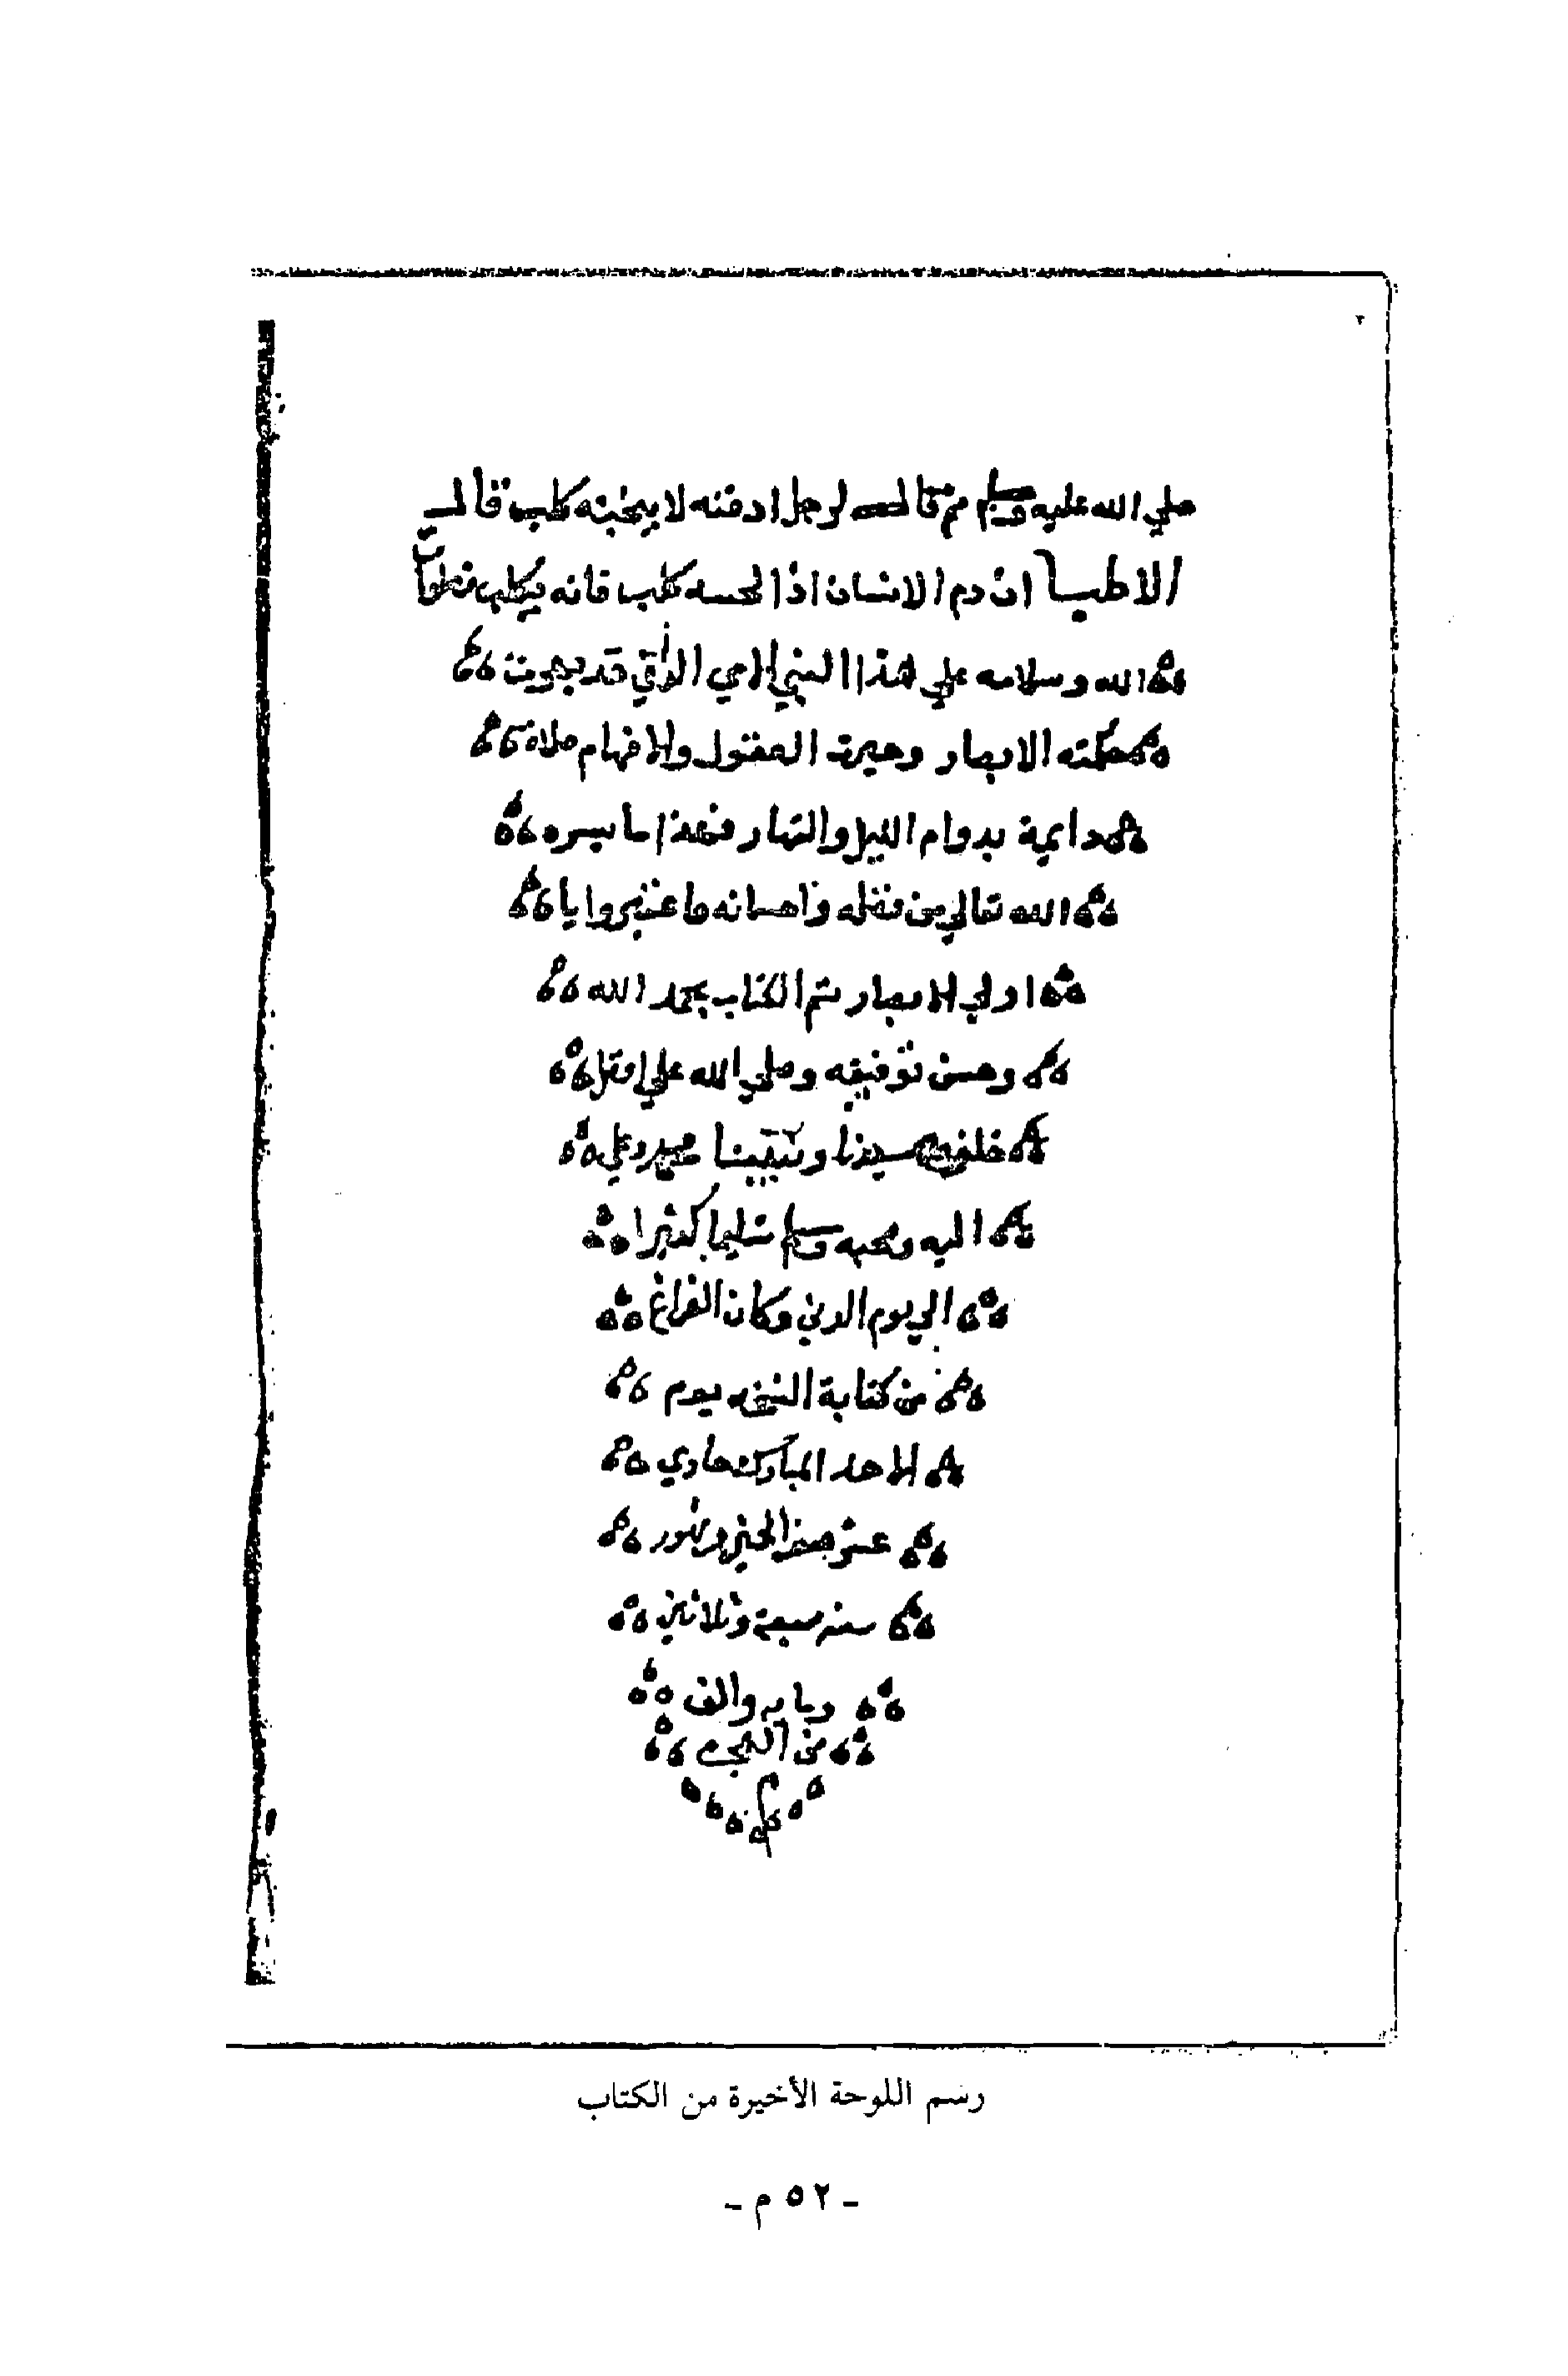 صلي الله عليه وسلم ثم قال لرجل ادفنه لا يبحثه كلب قال
الاطبا ان دم الانسان اذا لحسه كلب فانه يكلب فصلوات
الله وسلامه علي هذا النبي الامي الذي قد بهرت
حكمته الابصار وحيرت العقول والافهام صلاة
دايمة بدوام الليل والنهار فهذا ما يسره
الله تعالي من فضله واحسانه فاعتبروا يا
اولي الابصار تم الكتاب بحمد الله
وحسن توفيقه وصلي الله علي افضل
خلقه سيدنا ونبينا محمد وعلي
اليه وصحبه وسلم تسليما كثيرا
الي يوم الدين وكان الفراغ
من كتابة النسخه يوم
الاحد المبارك حادي
عشر صفر الخير
سنة سبعة وثلاثين
ومايه والف
من الهجره
م
رسم اللوحة الأخيرة من الكتاب
- ٥٢ م -